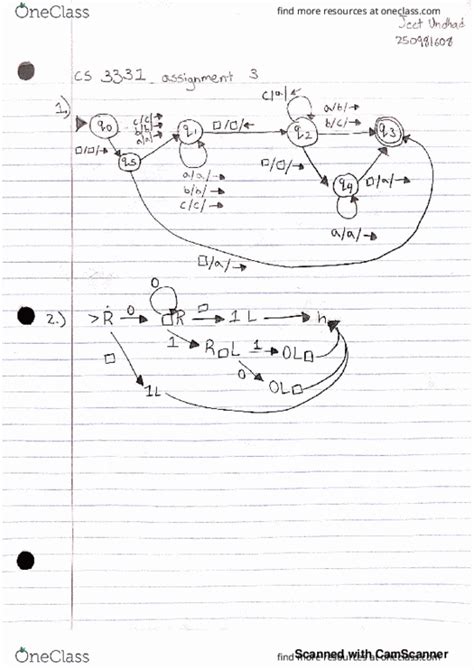 OneClass
find more resources at oneclass.com
Jeet Undhad
250981608
CS 3331 assignment 3
1.)
q0
c/c/→
b/b/→
a/a/→
q1
□/□/←
c/a/←
q2
a/b/→
b/c/→
q3
□/□/→
q5
a/a/→
b/b/→
c/c/→
□/□/→
q4
□/a/→
a/a/→
□/a/→
2.)
0
>R 0 □R □ 1L h
□ 1 R□L 1 0L□
0 0L□
1L
OneClass
find more resources at oneclass.com
Scanned with CamScanner